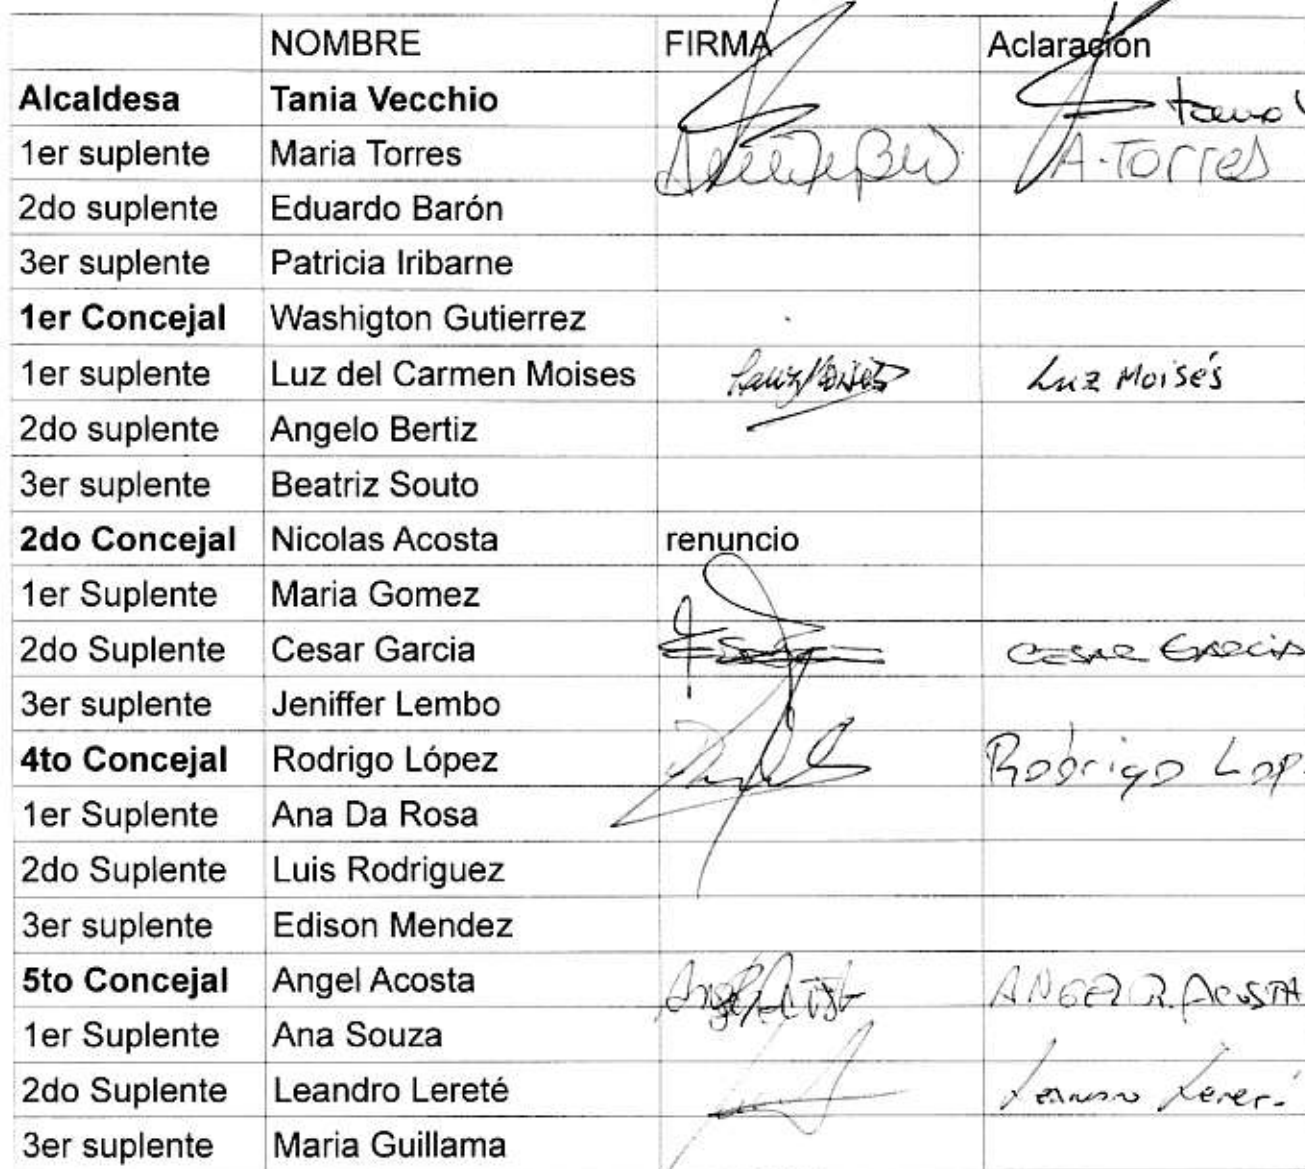 NOMBRE FIRMA Aclaración
Alcaldesa Tania Vecchio
1er suplente Maria Torres A. Torres
2do suplente Eduardo Barón
3er suplente Patricia Iribarne
1er Concejal Washigton Gutierrez
1er suplente Luz del Carmen Moises Luz Moisés
2do suplente Angelo Bertiz
3er suplente Beatriz Souto
2do Concejal Nicolas Acosta renuncio
1er Suplente Maria Gomez
2do Suplente Cesar Garcia CESAR GARCIA
3er suplente Jeniffer Lembo
4to Concejal Rodrigo López Rodrigo Lop
1er Suplente Ana Da Rosa
2do Suplente Luis Rodriguez
3er suplente Edison Mendez
5to Concejal Angel Acosta Angel Acosta ANGEL R. ACOSTA
1er Suplente Ana Souza
2do Suplente Leandro Lereté
3er suplente Maria Guillama